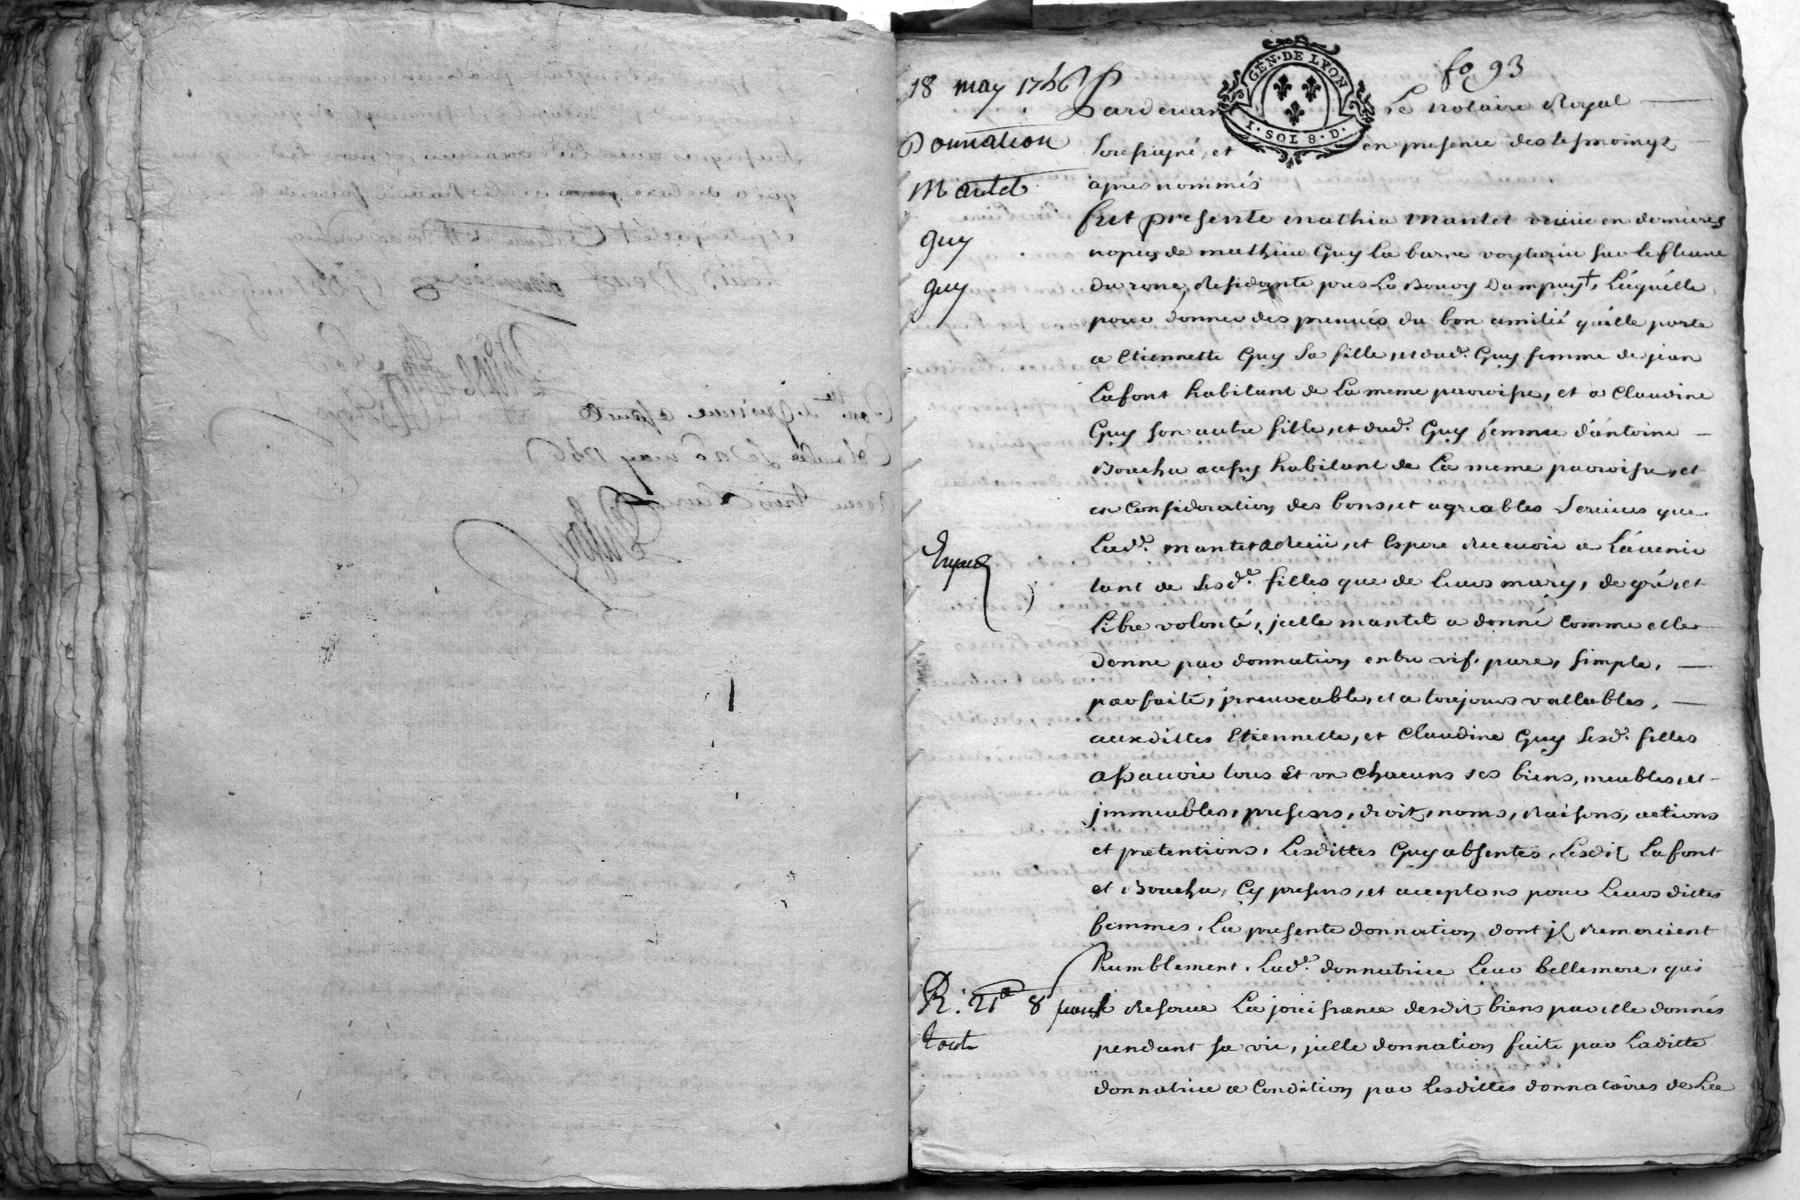 fo 93
GEN. DE LYON
I. SOL 8. D.
18 may 1746
Donnation
Mantet
guy
guy
R. 21e 8
Pardevant Le notaire Royal
soresigné, et en presence des tesmoingz
apres nommés
fut presente mathia mantet veuve en dernieres
nopces de mathieu Guy la barre voyturier sur le fleuve
du rone, Residante pres Le Bourg Dampuy†, Laquelle
pour donner des preuves du bon amitié qu'elle porte
a Etiennette Guy sa fille, et dud. Guy femme de jean
Lafont habitant de La meme parroisse, et a Claudine
Guy son autre fille, et dud. Guy femme d'antoine
Boucha aussy habitant de La meme parroisse, et
en Consideration des bons, et agreables services que
Lad.e mantet a Receü, et Espere Recevoir a L'avenir
tant de sesd.e filles que de Leurs marys, de gré, et
Libre volonté, jcelle mantet a donné Comme elle
donne par donnation entre vif, pure, simple,
parfaite, jrrevocable, et a toujours vallables,
auxdittes Etiennette, et Claudine Guy sesd. filles
assavoir tous Et vn Chacuns ses biens, meubles, et
jmmeubles, presens, droit, noms, Raisons, actions
et pretentions, Lesdittes Guy absentes, Lesdit Lafont
et Boucha, Cy presens, et acceptans pour Leurs dittes
femmes, La presente donnation dont jl Remercient
humblement, Lad.e donnatrice Leur bellemere, qui
Reserve La jouissance desdit biens par elle donnés
pendant sa vie, jcelle donnation faite par Laditte
donnatrice a Condition par Lesdittes donnataires de Lea